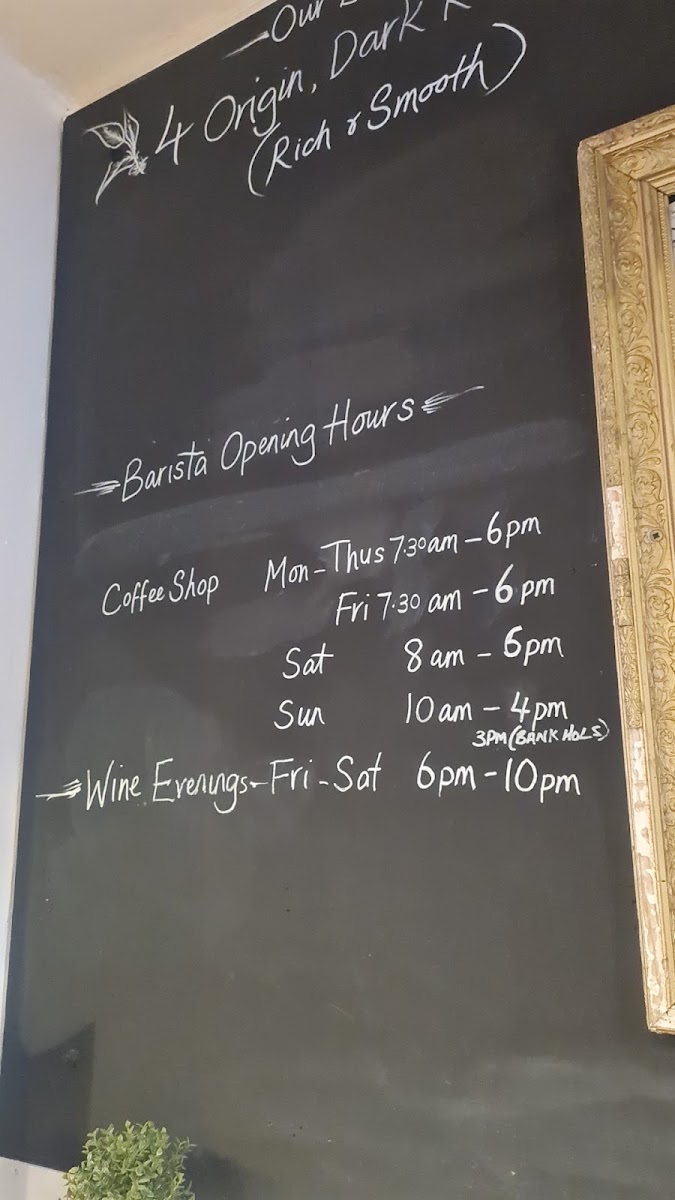 Our
4 Origin, Dark
(Rich & Smooth)
Barista Opening Hours
Coffee Shop Mon-Thus 7.30am - 6pm
Fri 7.30 am - 6pm
Sat 8am - 6pm
Sun 10am - 4pm
3PM (BANK HOLS)
Wine Evenings - Fri - Sat 6pm - 10pm